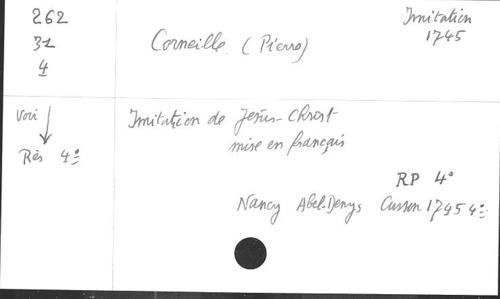 262
31
4
Corneille (Pierre)
Imitation
1745
Voir
Rés 4º
Imitation de Jésus-Christ
mise en français
RP 4º
Nancy Abel-Denys Cusson 1745 4º